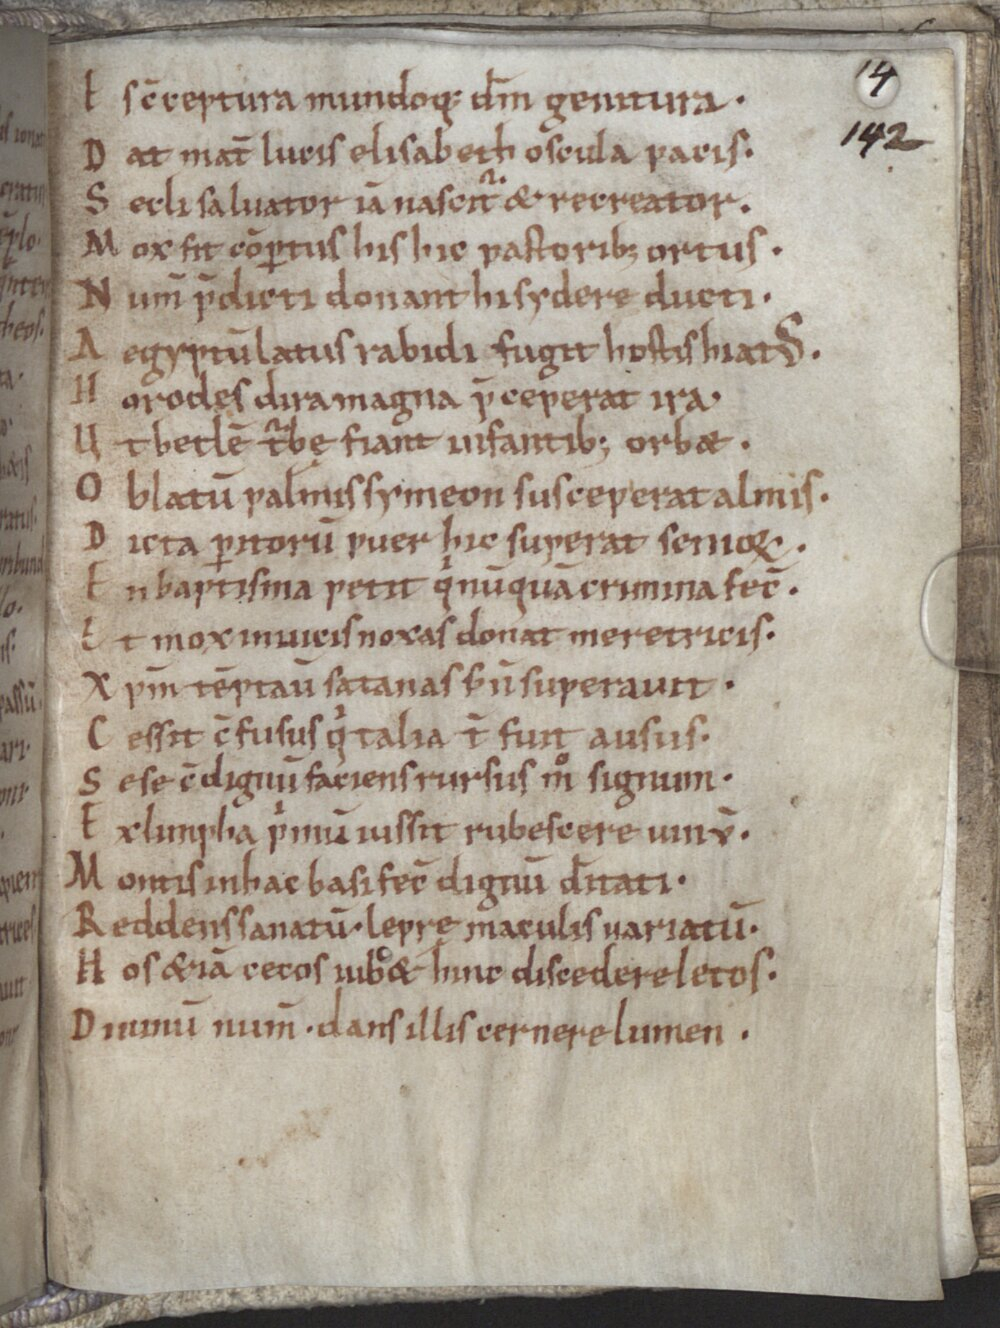 14
142
E sc̄ceptura mundoq; dn̄m genitura·
D at mat̄ lucis elisabeth oscula pacis·
S ecli saluator iā nascit̄ & recreator.
M ox fit cōptus his hic pastorib; ortus·
N um̄ p̄dicti donant hi sydere ducti·
A egyptū latus rabidi fugit hostis hiatus·
H orodes dira magna p̄ceperat ira·
U t betlē t̄bę fiant infantib; orbæ·
O blatū palmis symeon susceperat almis·
D icta peritorū puer hic superat senioꝝ·
E n baptisma petit q̇ nūquā crimina fec̄·
E t mox inuicis noxas donat meretricis·
X pm̄ tēptaū satanas s; hū superauit·
C essit c̄fusus q̇ talia t̄ fuit ausus·
S ese c̄dignū faciens rursus m̊ signum·
E x limpha ṗmū iussit rubescere uinū·
M ontis in hac basi fec̄ dignū d̄itati·
R eddens sanatū· leprę maculis uariatū·
H os & iā cecos iub& hinc discedere letos·
D iuinū num̄· dans illis cernere lumen·